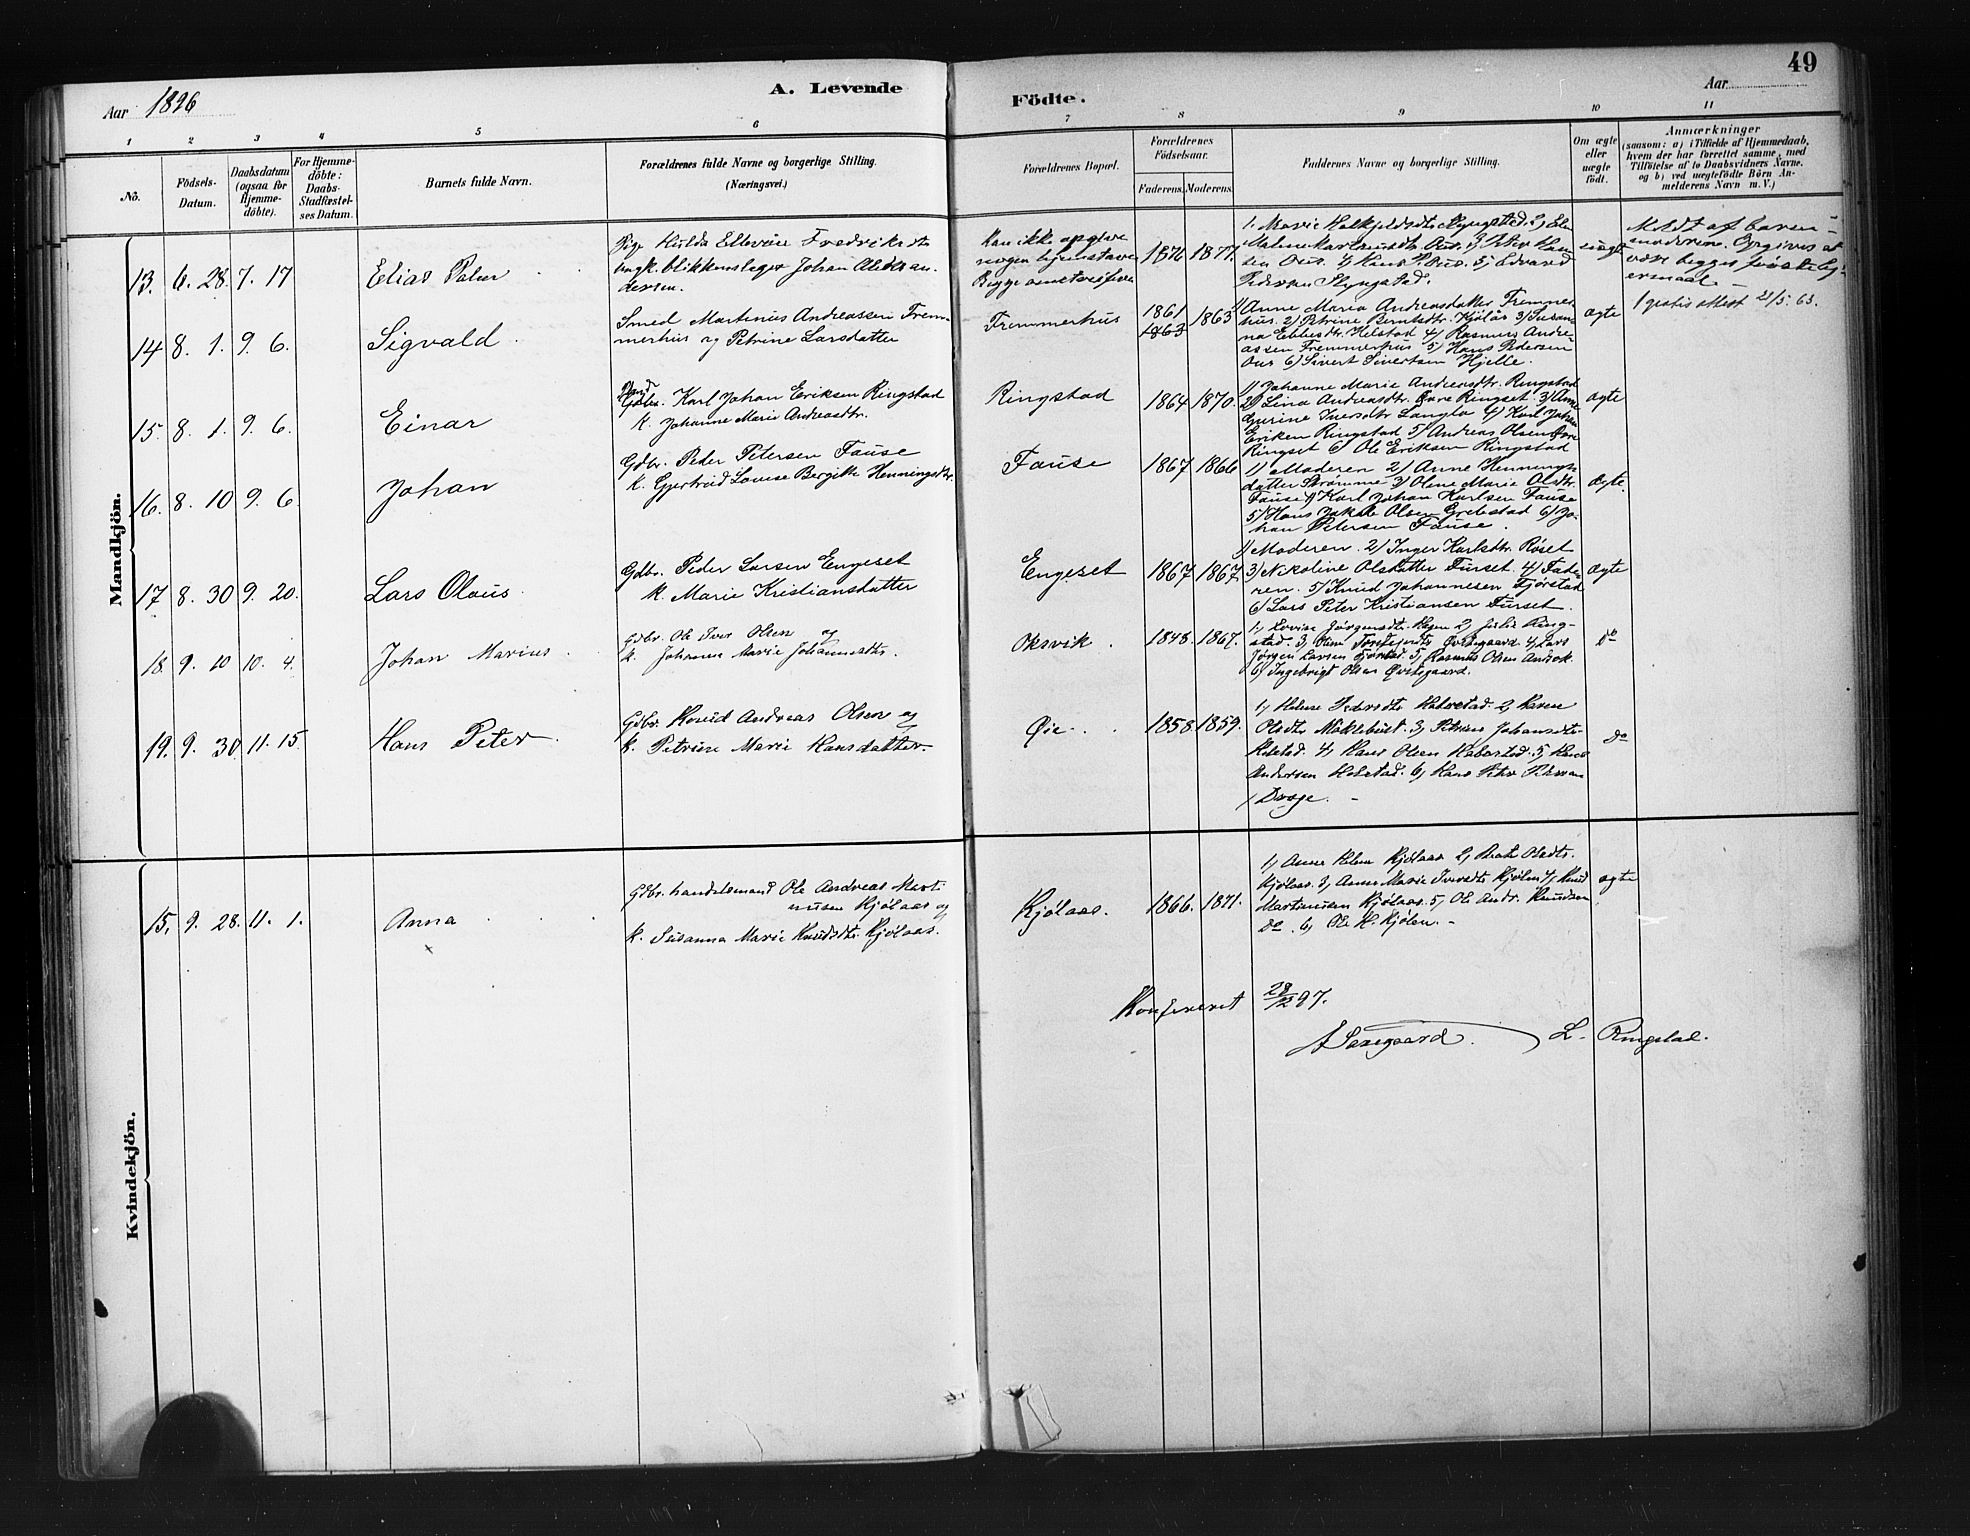 49
Aar 1896
A. Levende
Födte.
Aar
1 2 3 4 5 6 7 8 9 10 11
No.
Födsels-Datum.
Daabsdatum (ogsaa for Hjemme-döbte).
For Hjemme-döbte: Daabs-Stadfæstel-ses Datum.
Barnets fulde Navn.
Forældrenes fulde Navne og borgerlige Stilling.
(Næringsvei.)
Forældrenes Bopæl.
Forældrenes Födselsaar.
Faderens. Moderens.
Faddernes Navne og borgerlige Stilling.
Om ægte eller uægte födt.
Anmærkninger
(saasom: a) i Tilfælde af Hjemmedaab,
hvem der har forrettet samme, med
Tilföielse af to Daabsvidners Navne,
og b) ved uægtefödte Börn An-
melderens Navn m. V.)
Mandkjön.
13. 6. 28. 7. 17
Elias Peder
Pige Hulda
ungk. blikkenslager Johan Aleksan-
dersen.
Kan ikke opgive
nogen hjemstavn
Begge omstreifere
1876 1877.
uægte
Meldt af barne-
moderen. Opgives at
være begges første lei-
ermaal.
14 8. 1. 9. 6.
Sigvald
Smed Martinus Andreassen Frem-
merhus og Petrine Larsdatter
Fremmerhus
1861
1863 1863
1) Anne Maria Andreasdatter Fremmer-
hus. 2) Petrine Berntsdtr. Kjölås 3) Susan-
na Ebbesdtr. Helstad 4) Rasmus Andre-
assen Fremmerhus 5) Hans Pedersen
Ous 6) Sivert Sivertsen Hjelle.
ægte
1 gratis attest 21/5. 63.
15. 8. 1. 9. 6.
Einar
Gdbr. Karl Johan Eriksen Ringstad
k. Johanne Marie Andreasdtr.
Ringstad
1864 1870.
1) Johanne Marie Andreasdtr. Ringstad
2) Lina Andreasdtr. Øvre Ringset. 3) Anne
Gurine Iversdtr Langlo 4) Karl Johan
Eriksen Ringstad 5) Andreas Olsen Øvre
Ringset 6) Ole Eriksen Ringstad
ægte
16. 8. 10 9. 6
Johan
Gdbr. Peder Petersen Fause
k. Gjertrud Lovise Bergitte Henningsdtr.
Fause
1867 1866
1) Moderen 2) Anne Hennings-
datter Strømme 3) Olene Marie Olsdtr.
Fause 4) Karl Johan Karlsen Fause
5) Hans Jakob Olsen Grebstad 6) Jo-
han Petersen Fause.
ægte.
17 8. 30 9. 20.
Lars Olaus.
Gdbr. Peder Larsen Engeset
k. Marie Kristiansdatter
Engeset
1867 1867
1) Moderen. 2) Inger Karlsdtr. Røset
3) Nikoline Olsdatter Furset. 4) Fade-
ren. 5) Knud Johannesen Fjørstad
6) Lars Peter Kristiansen Furset.
ægte
18. 9. 10 10. 4.
Johan Marius.
Gdbr. Ole Iver Olsen og
k. Johanne Marie Johannesdtr.
Oksvik.
1848. 1867.
1, Lovise Jørgensdtr. Hagen 2, Julie Ring-
stad. 3, Oline Qvitegaard. 4, Lars
Jørgen Larsen 5, Rasmus Olsen
6, Ingebrigt Olsen Qvitegaard.
do
19. 9. 30. 11. 15.
Hans Peter.
Gdbr. Knud Andreas Olsen og
k. Petrine Marie Hansdatter
Øie.
1858. 1859.
1, Helene 2, Karen
Olsdtr Myklebust. 3, Petrine Johansdtr.
Helstad. 4, Hans Olsen 5, Hans
Andersen Helstad. 6, Hans Peter
Drage.
do
Kvindekjön.
15, 9. 28. 11. 1.
Anna
Gdbr. handelsmand Ole Andreas Marti-
nusen Kjölaas og
k. Susanna Marie Knudsdtr. Kjölaas.
Kjölaas.
1866. 1871.
1, Anne Helene Kjölaas 2, Beate Olsdtr.
Kjölaas. 3, Anne Marie Iversdtr Kjölen 4, Knud
Martinusen Kjölaas. 5, Ole Andr. Knudsen
do. 6, Ole H. Kjölen.
ægte
Konfereret 28/2 97.
A Saxegaard. L. Ringstad.